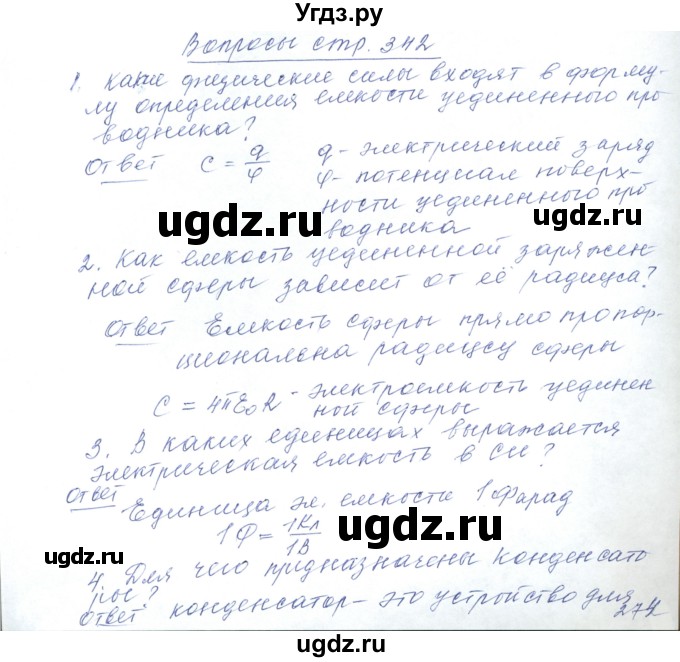 Угдз.ру
Вопросы стр. 342
1. Какие физические силы входят в форму-
лу определения емкости уединенного про
водника?
Ответ C = q/φ q - электрический заряд
φ - потенциал поверх-
ности уединенного про
водника
ugdz.ru ugdz.ru
2. Как емкость уединенной заряжен-
ной сферы зависит от её радиуса?
Ответ Емкость сферы прямо пропор-
циональна радиусу сферы
C = 4πε₀R - электроемкость уединен
ной сферы
3. В каких единицах выражается
электрическая емкость в СИ?
Ответ
Единица эл. емкости 1 Фарад
1Ф = 1Кл/1В
ugdz.ru ugdz.ru
4. Для чего предназначены конденсато
ры?
Ответ конденсатор - это устройство для
274
ugdz.ru